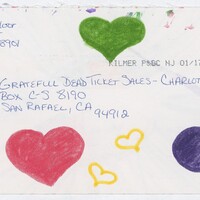 loor
8901
KILMER P&DC NJ 01/17
GRATEFUL DEAD TICKET SALES - CHARLOT
BOX C-S 8190
SAN RAFAEL, CA
94912